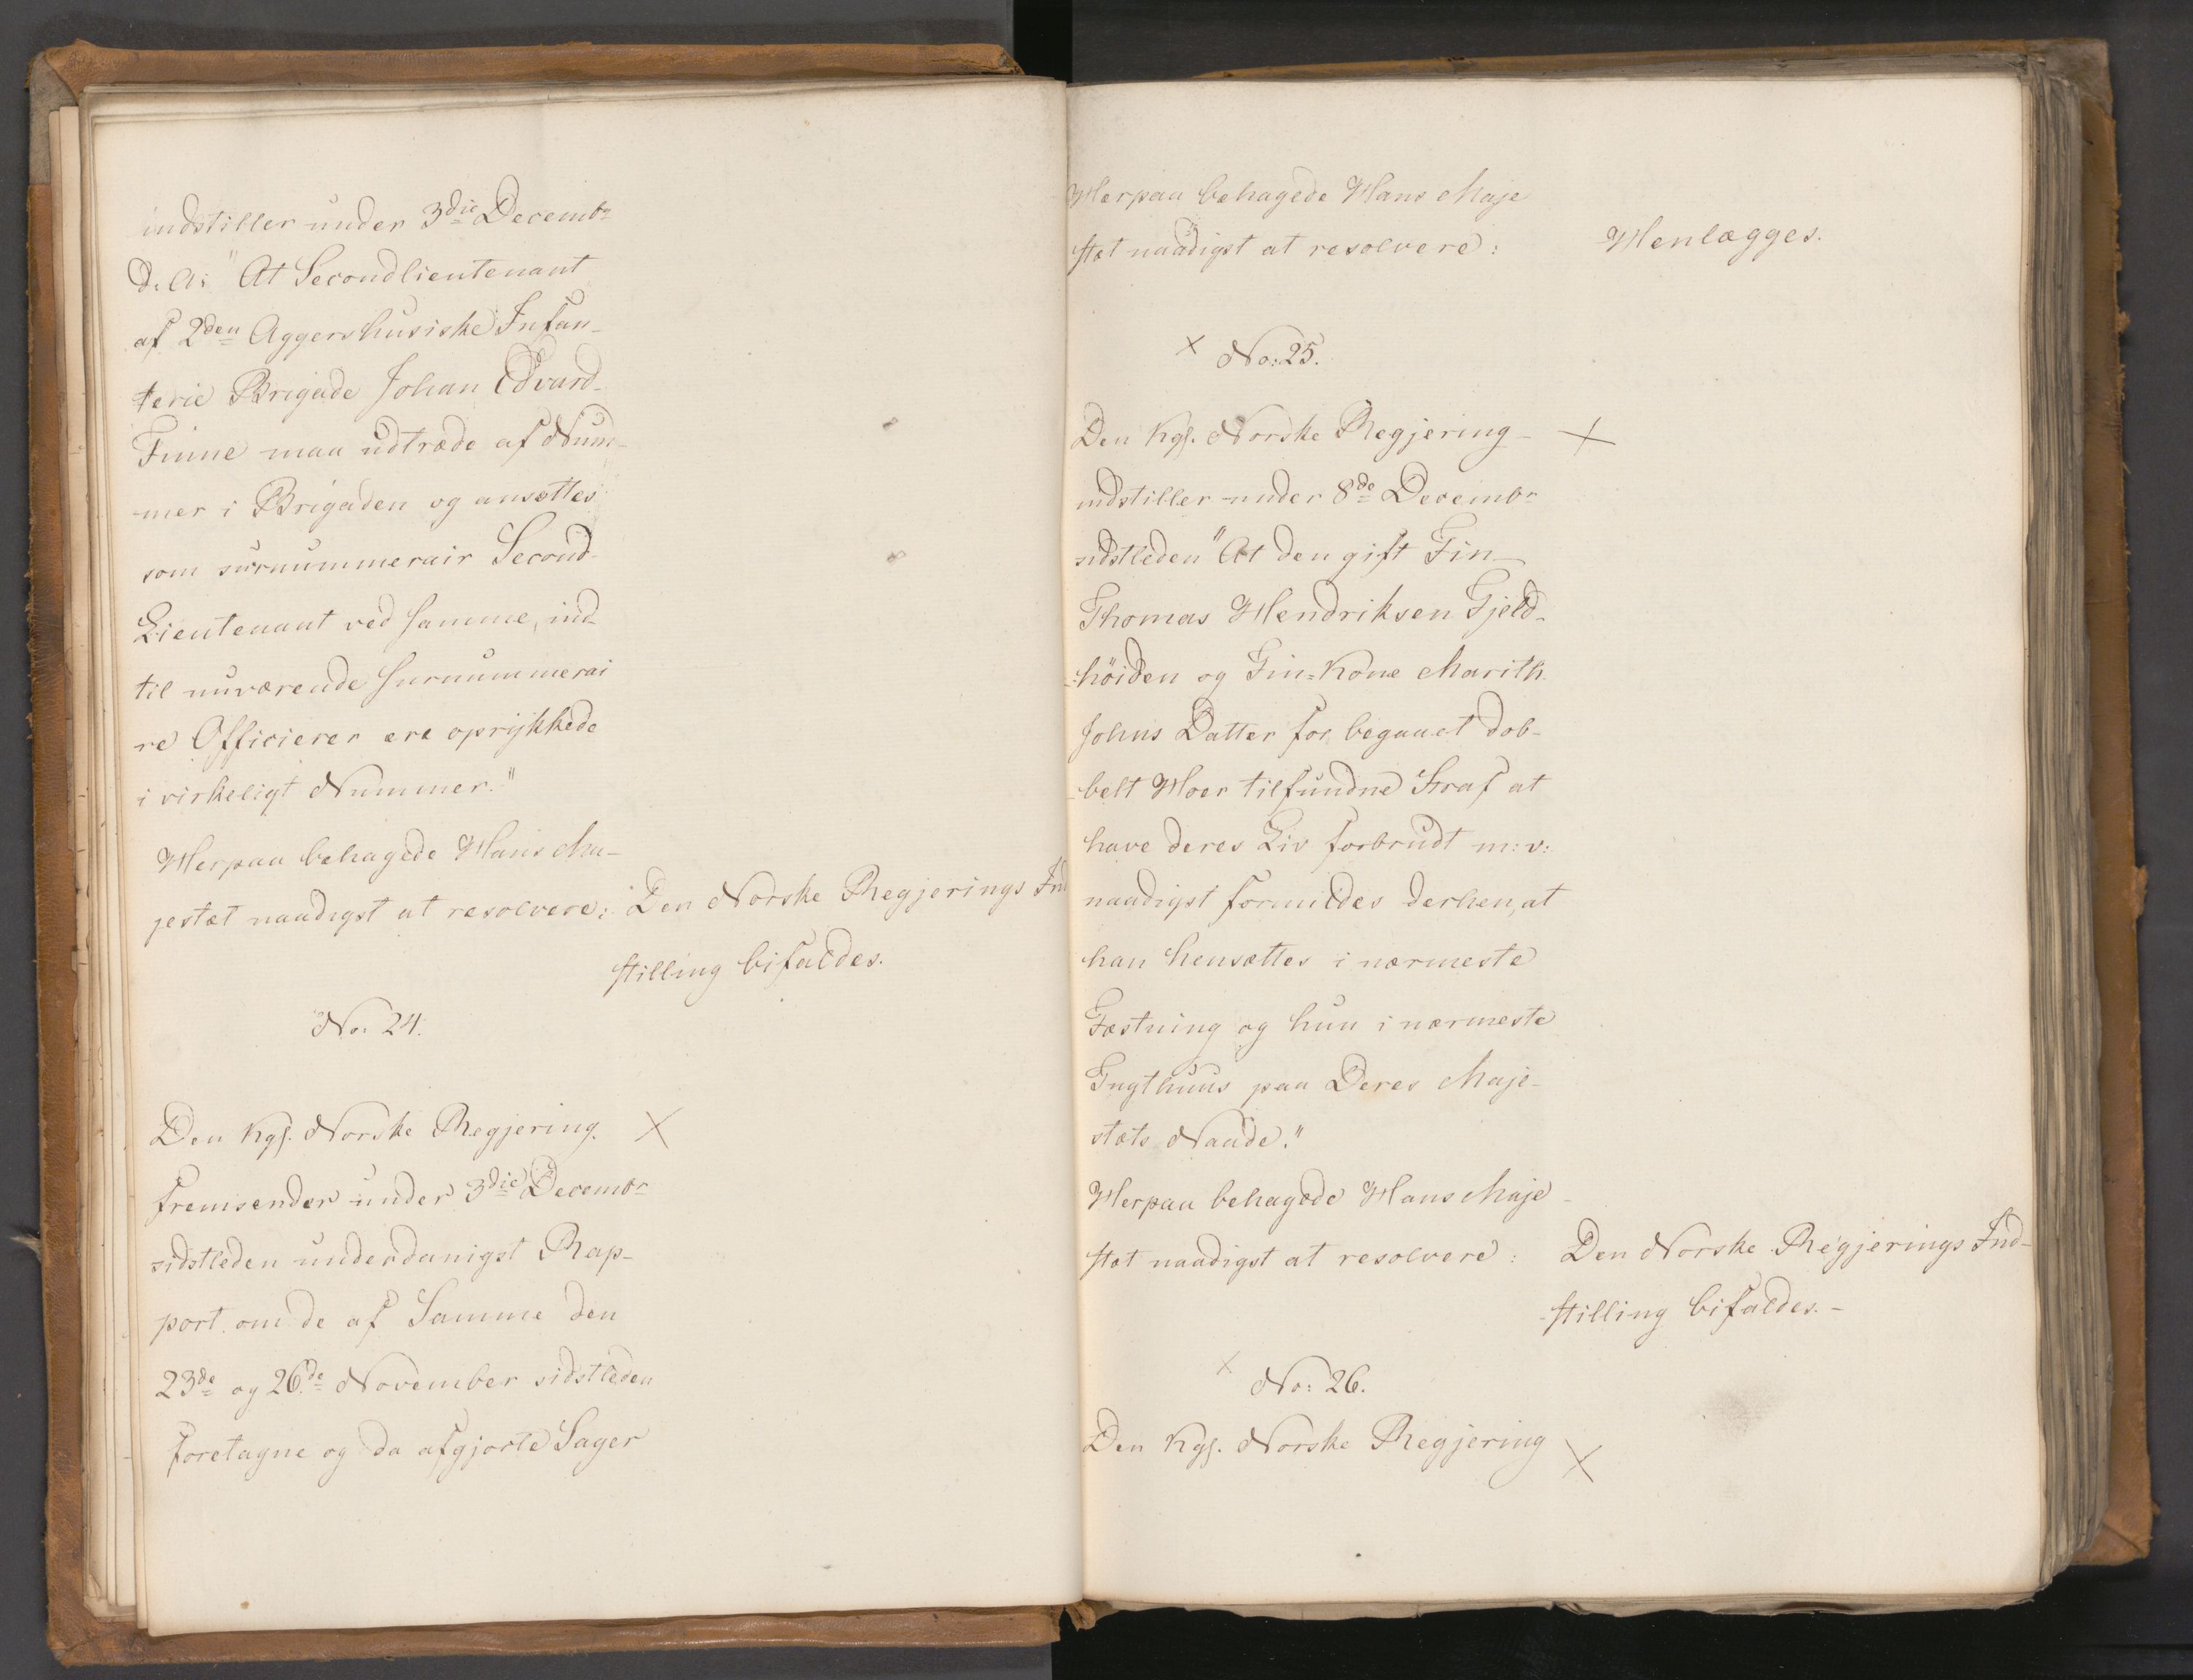 indstiller under 3die Decembr
d. A: "At Secondlieutenant
af 2den Aggershusiske Infan-
terie Brigade Johan Edvard
Finne maa udtræde af Num-
mer i Brigaden og ansættes
som surnummerair Second-
Lieutenant ved samme, ind-
til nuværende surnummerai
re Officierer ere oprykkede
i virkeligt Nummer."
Herpaa behagede Hans Ma-
jestæt naadigst at resolvere: Den Norske Regjerings Ind
stilling bifaldes.
No: 24.
Den Kgl. Norske Regjering. X
fremsender under 3die Decembr
sidstleden underdanigst Rap-
port om de af Samme den
23de og 26de November sidstleden
foretagne og da afgjorte Sager
Herpaa behagede Hans Maje
stæt naadigst at resolvere: Henlægges.
X No: 25.
Den Kgl. Norske Regjering- X
indstiller under 8de Decembr
sidstleden "At den gift Fin
Thomas Hendriksen Gjeld-
-høiden og Fin=Kone Marith
Johns Datter for begaaet dob-
belt Hoer tilfundne Straf at
have deres Liv forbrudt m: v:
naadigst formildes derhen, at
han hensættes i nærmeste
Fæstning og hun i nærmeste
Tugthuus paa Deres Maje-
stæts Naade."
Herpaa behagede Hans Maje-
stæt naadigst at resolvere: Den Norske Regjerings Ind-
stilling bifaldes.-
X No: 26.
Den Kgl. Norske Regjering X